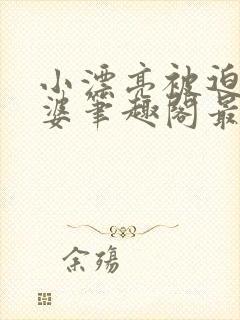 小漂亮被迫
婆笔趣阁最
余殇